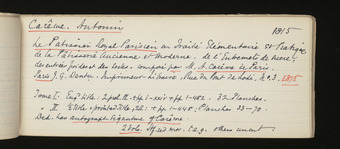 Carême. Antonin
1815
Le Patissier Royal Parisien ou Traité Elémentaire et Pratique
de la Pâtisserie Ancienne et Moderne. de l'Entremets de sucre,
des entrées froides et des socles. composé par M. A. Carême de Paris.
Paris, J. G. Dentu. Imprimeur-Libraire, Rue du Pont de Lodi, No. 3. 1815
Tome I. Engd title: 2 prel. + pp i-xxiv + pp 1-482. 32 Planches.
" II. title + printed title, 2 l: + pp 1-448. Planches 33-70.
Ded: has autograph signature of Carême
2 Vols. uncut